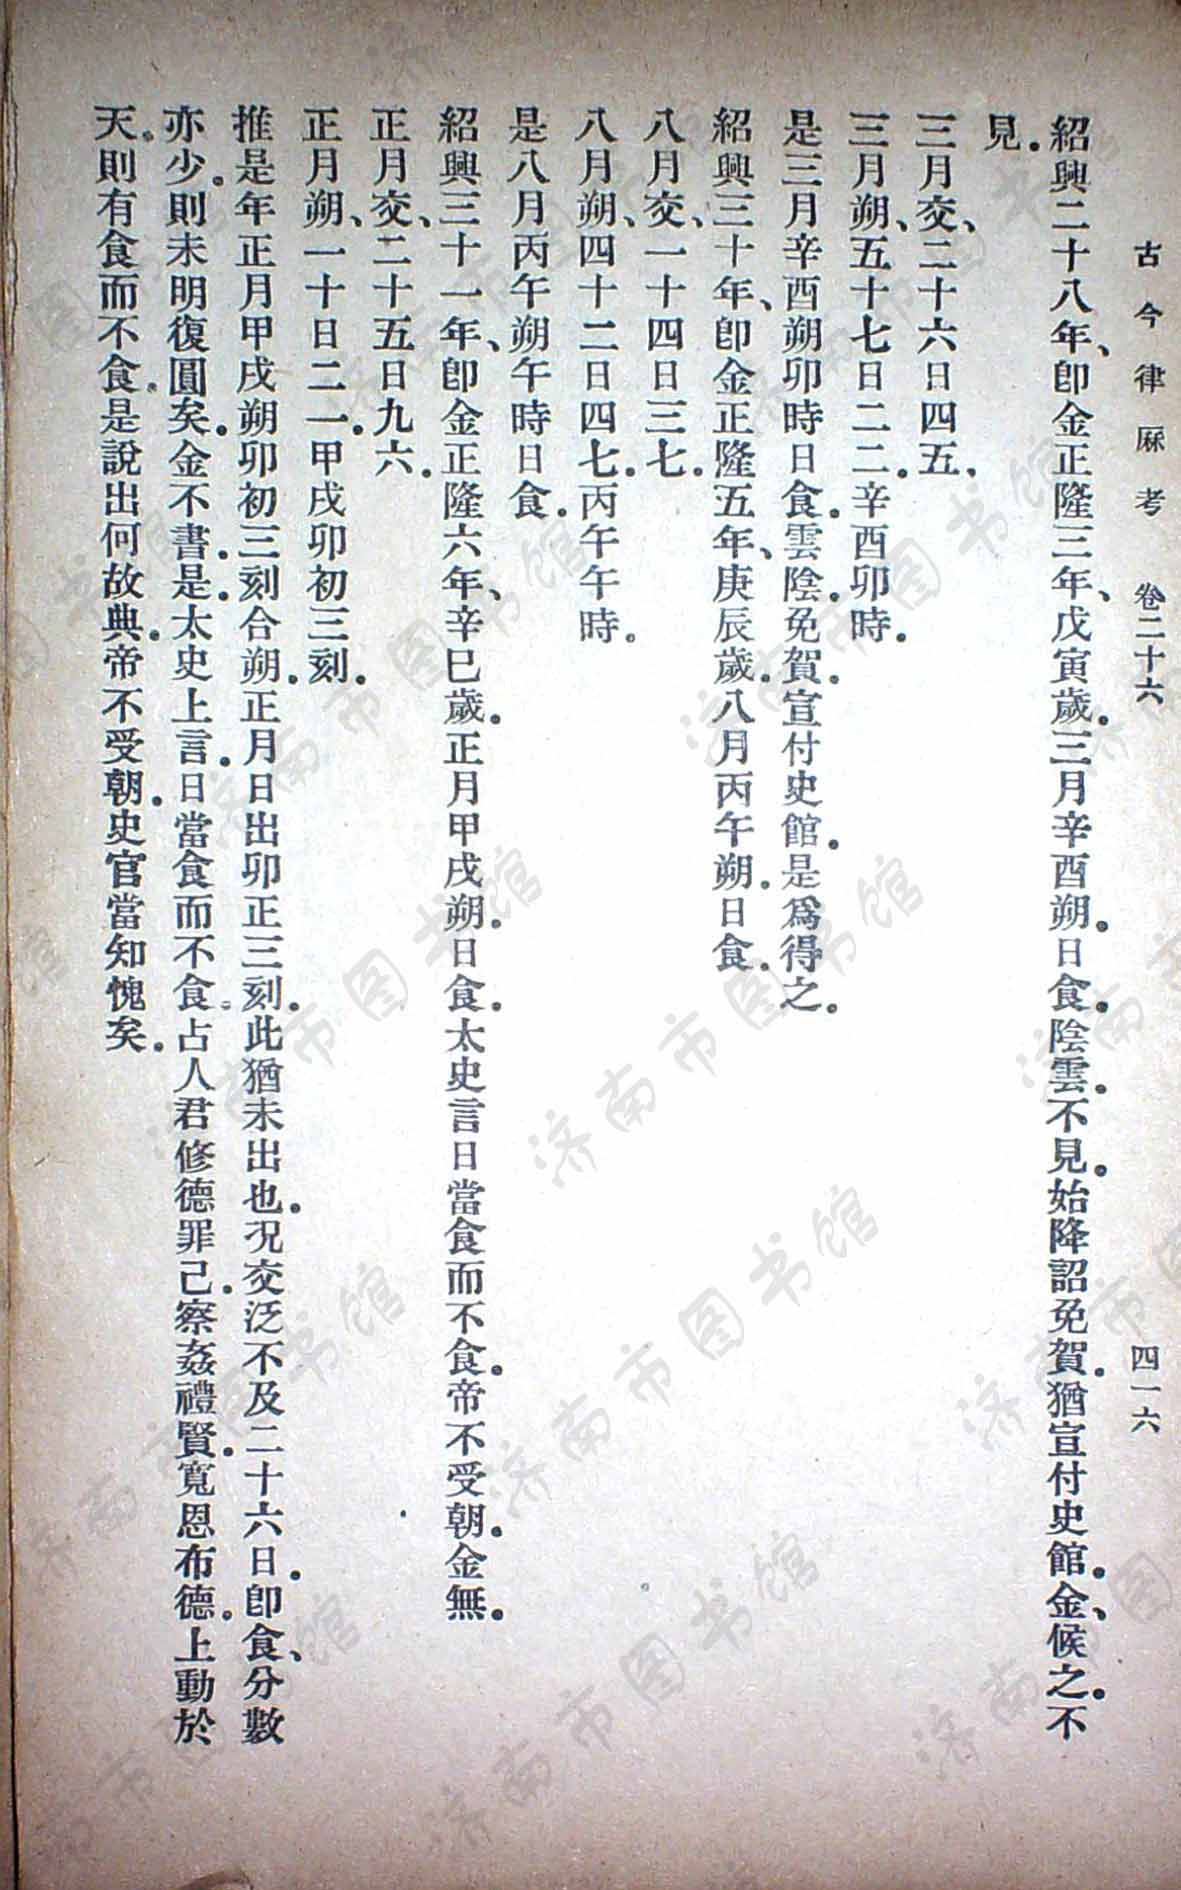 古今律厤考 卷二十六 四一六
紹興二十八年、卽金正隆三年、戊寅歲。三月辛酉朔。日食。陰雲。不見。始降詔免賀。猶宣付史館。金、候之。不
見。
三月交、二十六日四五。
三月朔、五十七日二二。辛酉卯時。
是三月辛酉朔卯時日食。雲陰。免賀。宣付史館。是爲得之。
紹興三十年、卽金正隆五年、庚辰歲。八月丙午朔。日食。
八月交、一十四日三七。
八月朔、四十二日四七。丙午午時。
是八月丙午朔午時日食。
紹興三十一年、卽金正隆六年、辛巳歲。正月甲戌朔。日食。太史言日當食而不食。帝不受朝。金無。
正月交、二十五日九六。
正月朔、一十日二一。甲戌卯初三刻。
推是年正月甲戌朔卯初三刻合朔。正月日出卯正三刻。此猶未出也。况交泛不及二十六日。卽食、分數
亦少。則未明復圓矣。金不書。是。太史上言。日當食而不食。占人君修德罪己。察姦禮賢。寬恩布德。上動於
天。則有食而不食。是說出何故典。帝不受朝。史官當知愧矣。
济南市图书馆
济南市图书馆
济南市图书馆
济南市图书馆
济南市图书馆
济南市图书馆